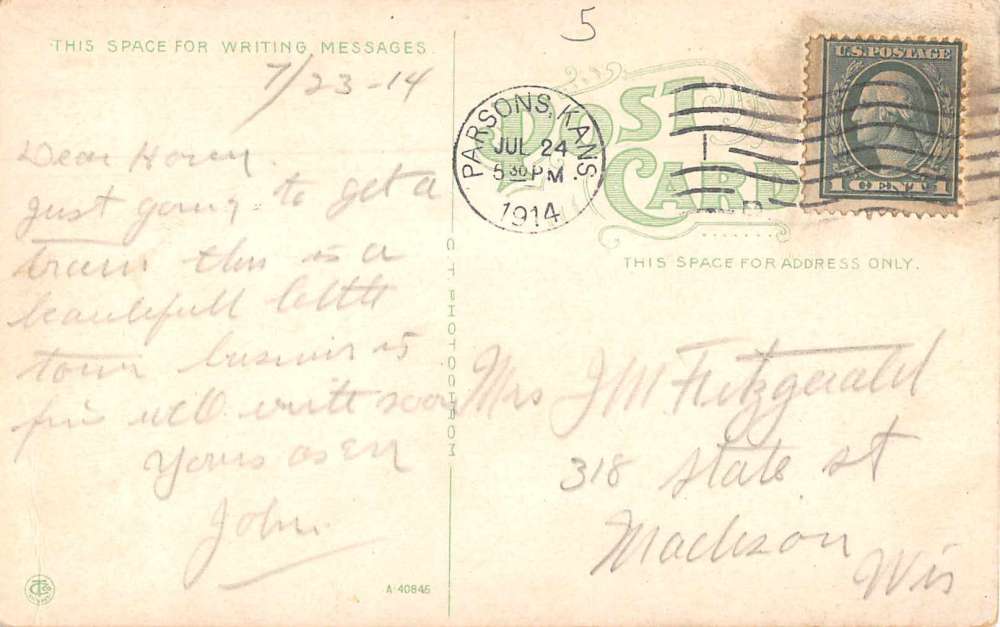 THIS SPACE FOR WRITING MESSAGES
7/23-14
Dear
just going to get a
train this is a
beautifull little
town busines is
fin will write soon
Yours as ev
John.
5
POST
CARD
PARSONS, KANS.
JUL 24
5 30 PM
1914
U.S. POSTAGE
1 CENT 1
THIS SPACE FOR ADDRESS ONLY.
C T PHOTOCHROM
Mrs J M Fitzgerald
318 State st
Madison
Wis
A-40845